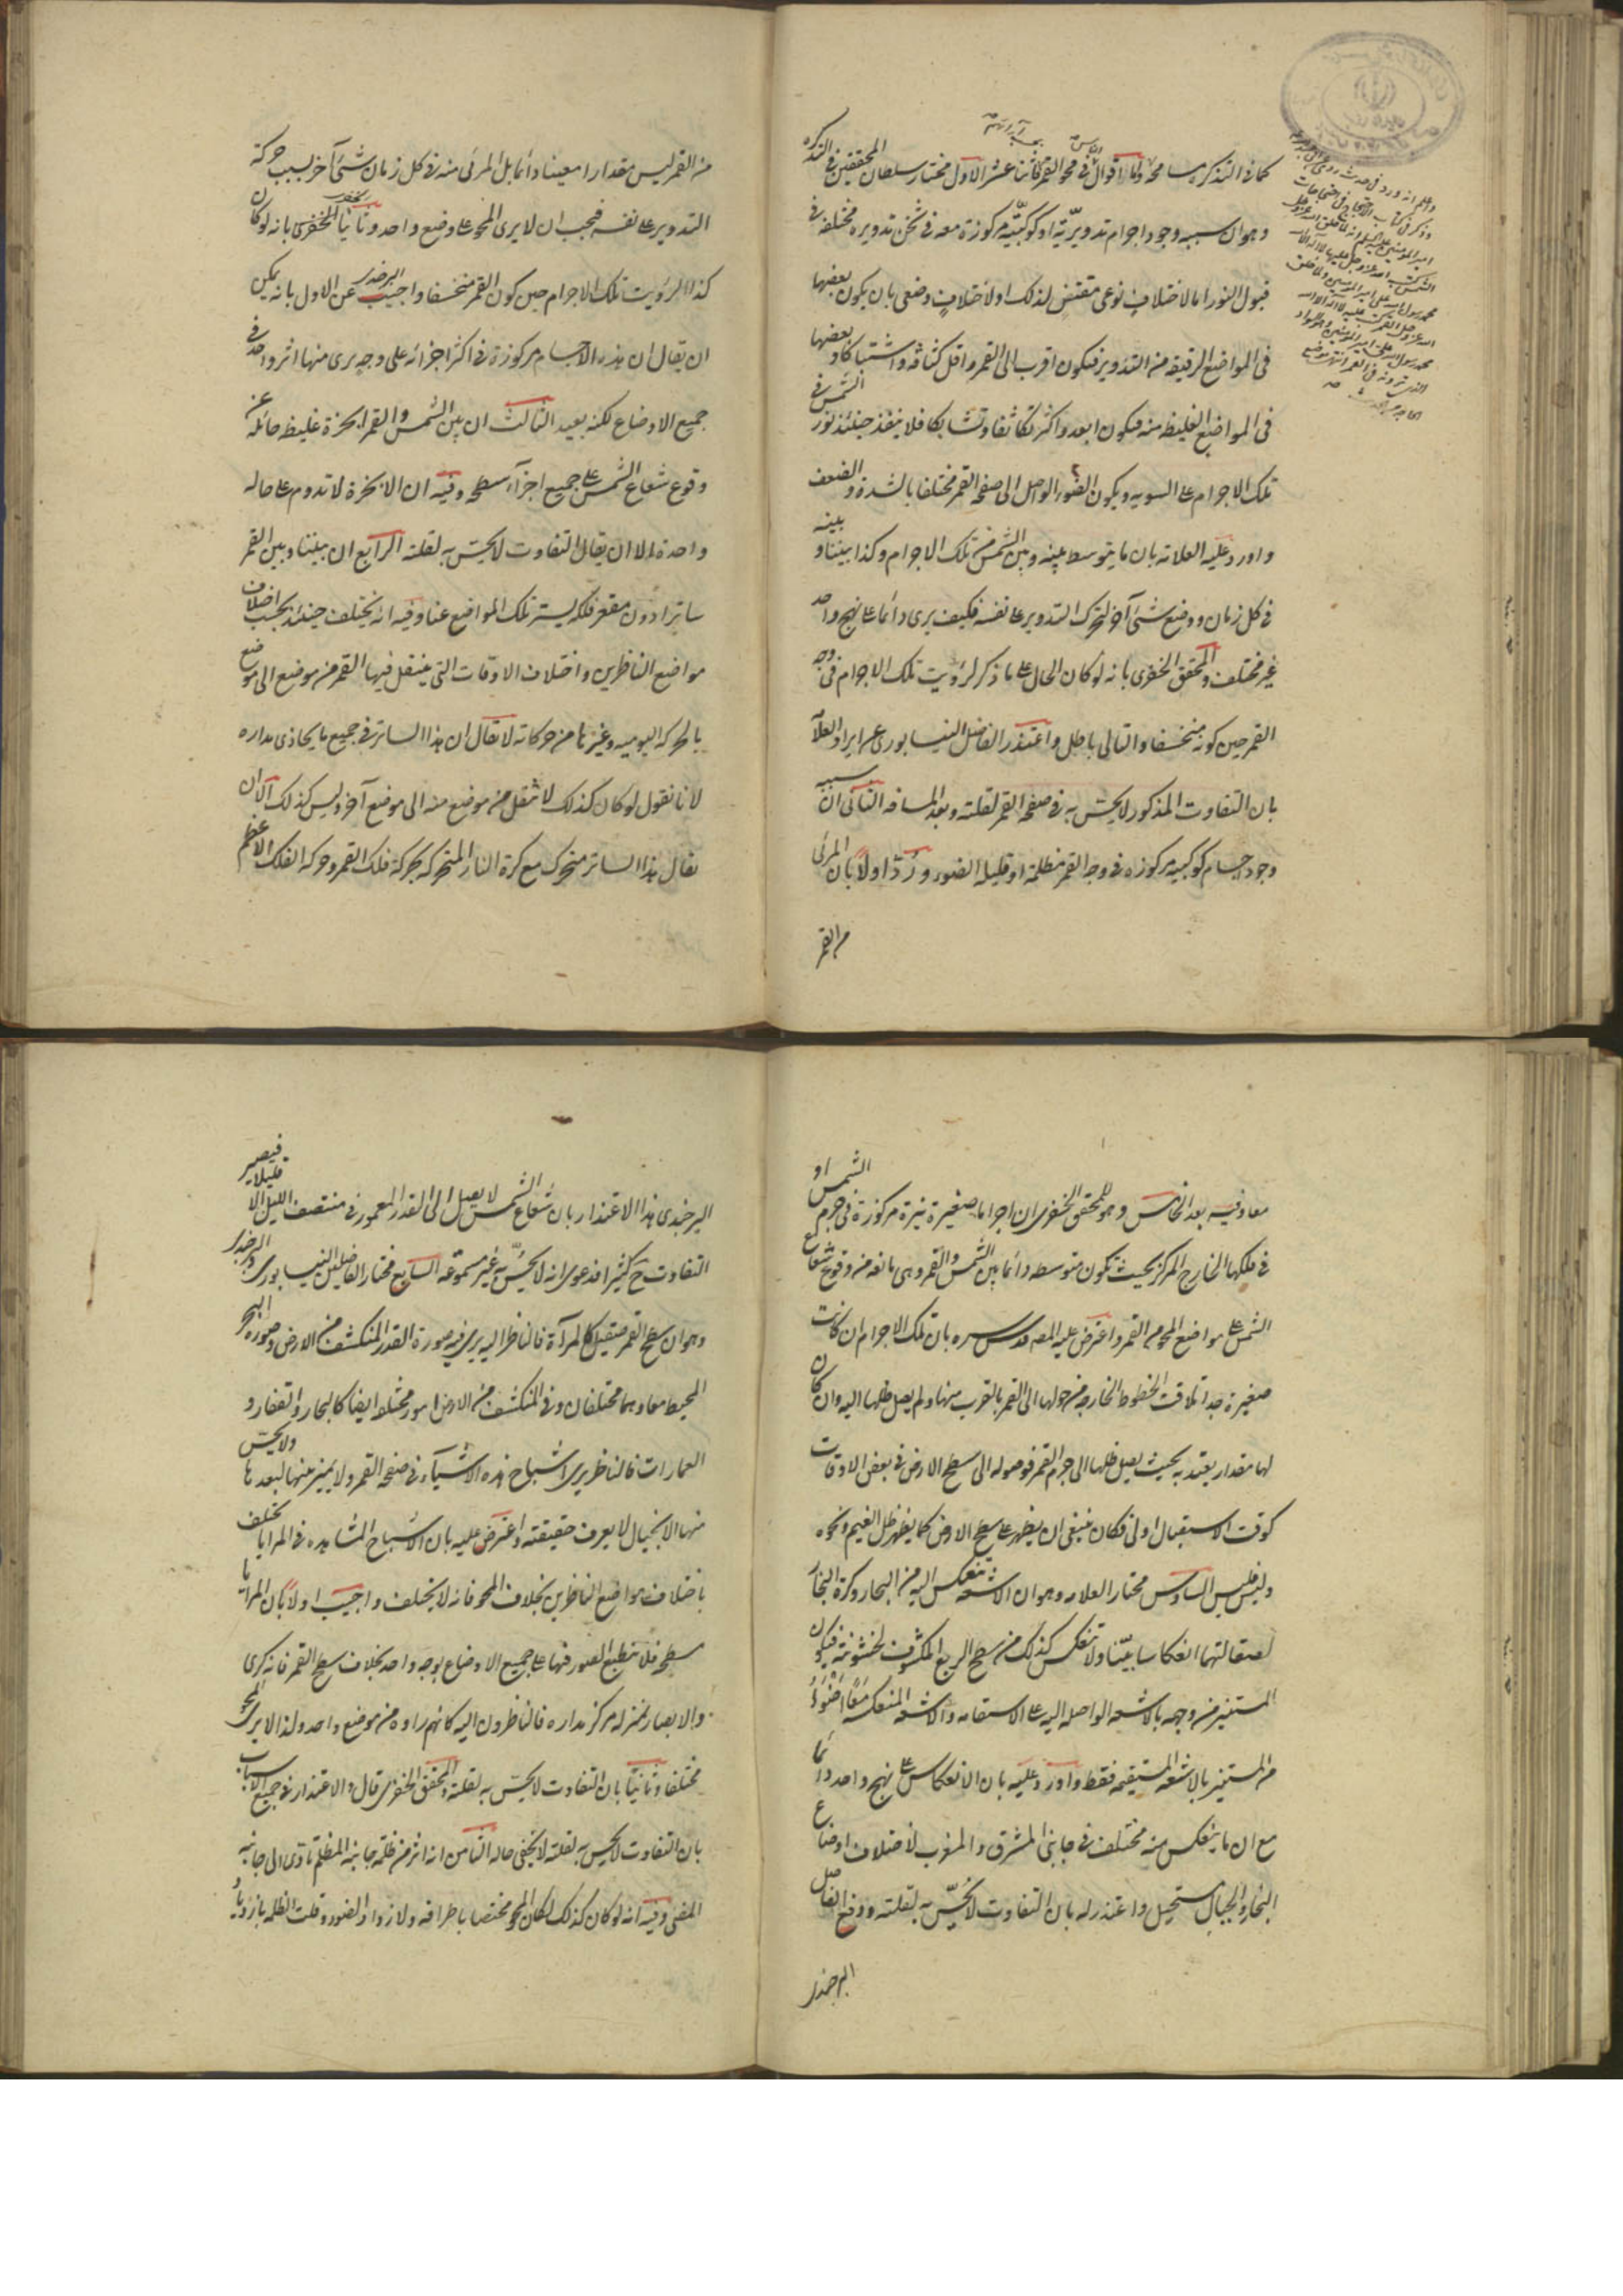 كما فى التذكرة يسا محوا واما اقوال الناس فى محو القمر فاثنا عشر الاول مختار سلطان المحققين فى التذكره
وهو ان سببه وجود اجرام تدويرية او كوكبية مركوزة معه فى ثخن تدويره مختلفه فى
قبول النور اما لاختلاف نوعى مقتض لذلك او لاختلاف وضعى بان يكون بعضها
فى المواضع الرقيقه من التدوير فيكون اقرب الى القمر واقل كثافة واشتباكا وبعضها
فى المواضع الغليظه منه فيكون ابعد واكثر تكاثفا وتشابكا فلا ينفذ حينئذ نور الشمس فى
تلك الاجرام على السويه ويكون الضوء الواصل الى صفحة القمر مختلفا بالشدة والضعف
واورد عليه العلامه بان ما يتوسط بينه وبين الشمس من تلك الاجرام وكذا بيننا وبينه
فى كل زمان ووضع شئ آخر لتحرك التدوير على نفسه فكيف يرى دائما على نهج واحد
غير مختلف والمحقق الخفرى بانه لو كان الحال على ما ذكر لرؤيت تلك الاجرام فى وجه
القمر حين كونه منخسفا والتالى باطل واعتذر الفاضل النيسابورى عن ايراد العلامه
بان التفاوت المذكور لا يحس به فى صفحة القمر لقلته وبعد المسافه الثانى ان سببه
وجود اجسام كوكبيه مركوزه فى وجه القمر مظلمة او قليلة الضوء ورد اولا بان المرئى
من القمر
من القمر ليس مقدارا معينا دائما بل المرئى منه فى كل زمان شئ آخر بسبب حركة
التدوير على نفسه فيجب ان لا يرى المحو على وضع واحد وثانيا للخفرى بانه لو كان
كذا لرؤيت تلك الاجرام حين كون القمر منخسفا واجيب عن الاول بانه يمكن
ان يقال ان هذه الاجسام مركوزة فى اكثر اجزائه على وجه يرى منها اثر واحد فى
جميع الاوضاع لكنه بعيد الثالث ان بين الشمس والقمر ابخرة غليظه حائله عن
وقوع شعاع الشمس على جميع اجزاء سطحه وفيه ان الابخرة لا تدوم على حاله
واحدة الا ان يقال التفاوت لا يحس به لقلته الرابع ان بيننا وبين القمر
ساترا دون مقعر فلكه يستر تلك المواضع عنا وفيه انه يختلف حينئذ بحسب اختلاف
مواضع الناظرين واختلاف الاوقات التى ينتقل فيها القمر من موضع الى موضع
بالحركه اليوميه وغيرها من حركاته لا يقال ان هذا الساتر فى جميع ما يحاذى مداره
لانا نقول لو كان كذلك لانتقل من موضع منه الى موضع آخر وليس كذلك الا ان
يقال هذا الساتر متحرك مع كرة النار المتحركه بحركة فلك القمر وحركه الفلك الاعظم
معا وفيه بعد الخامس وهو للمحقق الخفرى ان اجراما صغيرة نيرة مركوزة فى جرم الشمس او
فى فلكها الخارج المركز بحيث تكون متوسطه دائما بين الشمس والقمر وهى مانعه من وقوع شعاع
الشمس على مواضع المحو من القمر واعترض عليه المص قدس سره بان تلك الاجرام ان كانت
صغيرة جدا تلاقت الخطوط الخارجه من حولها الى القمر بالقرب منها ولم يصل ظلها اليه وان كان
لها مقدار يعتد به بحيث يصل ظلها الى جرم القمر فوصوله الى سطح الارض فى بعض الاوقات
كوقت الاستقبال اولى فكان ينبغى ان يظهر على سطح الارض كما يظهر ظل الغيم ونحوه
وليس فليس السادس مختار العلامه وهو ان الاشعه تنعكس اليه من البحار وكرة البخار
لصقالتهما انعكاسا بينا ولا تنعكس كذلك من سطح الربع المكشوف لخشونته فيكون
المستنير من وجهه بالاشعه الواصله اليه على الاستقامه والاشعه المنعكسه معا اضوأ
من المستنير بالاشعه المستقيمه فقط واورد عليه بان الانعكاس على نهج واحد دائما
مع ان ما ينعكس منه مختلف فى جانبى المشرق والمغرب لاختلاف اوضاع
البخار والجبال مستحيل واعتذر له بان التفاوت لا يحس به لقلته ودفع الفاضل
البرجندى
البرجندى هذا الاعتذار بان شعاع الشمس لا يصل الى القدر المعمور فى منتصف الليل الا قليلا فيصير
التفاوت ح كثيرا فدعوى انه لا يحس به غير مسموعه السابع مختار الفاضلين النيسابورى والبرجندى
وهو ان سطح القمر صقيل كالمرآة فالناظر اليه يرى فيه صورة القدر المنكشف من الارض وصورة البحر
المحيط معا وهما مختلفان وفى المنكشف من الارض امور مختلفه ايضا كالبحار والقفار و
العمارات فالناظر يرى اشباح هذه الاشياء فى صفحة القمر ولا يميز عنها لبعدها ولا يحس
منها الا بخيال لا يعرف حقيقته واعترض عليه بان الاشباح المشاهده فى المرايا تختلف
باختلاف مواضع الناظرين بخلاف المحو فانه لا يختلف واجيب اولا بان المرايا
مسطحه فلا تنطبع الصور فيها على جميع الاوضاع بوجه واحد بخلاف سطح القمر فانه كرى
والابصار بمنزله مركز مداره فالناظرون اليه كانهم راوه من موضع واحد ولذا لا يرى المحو
مختلفا وثانيا بان التفاوت لا يحس به لقلته والمحقق الخفرى قال والاعتذار فى جميع الاسباب
بان التفاوت لا يحس به لقلته لا يخفى حاله الثامن انه اثر من ظلمة جانبه المظلم تادى الى جانبه
المضئ وفيه انه لو كان كذلك لكان المحو مختصا باطرافه ولازداد الضوء وقلت الظلمه بازدياد